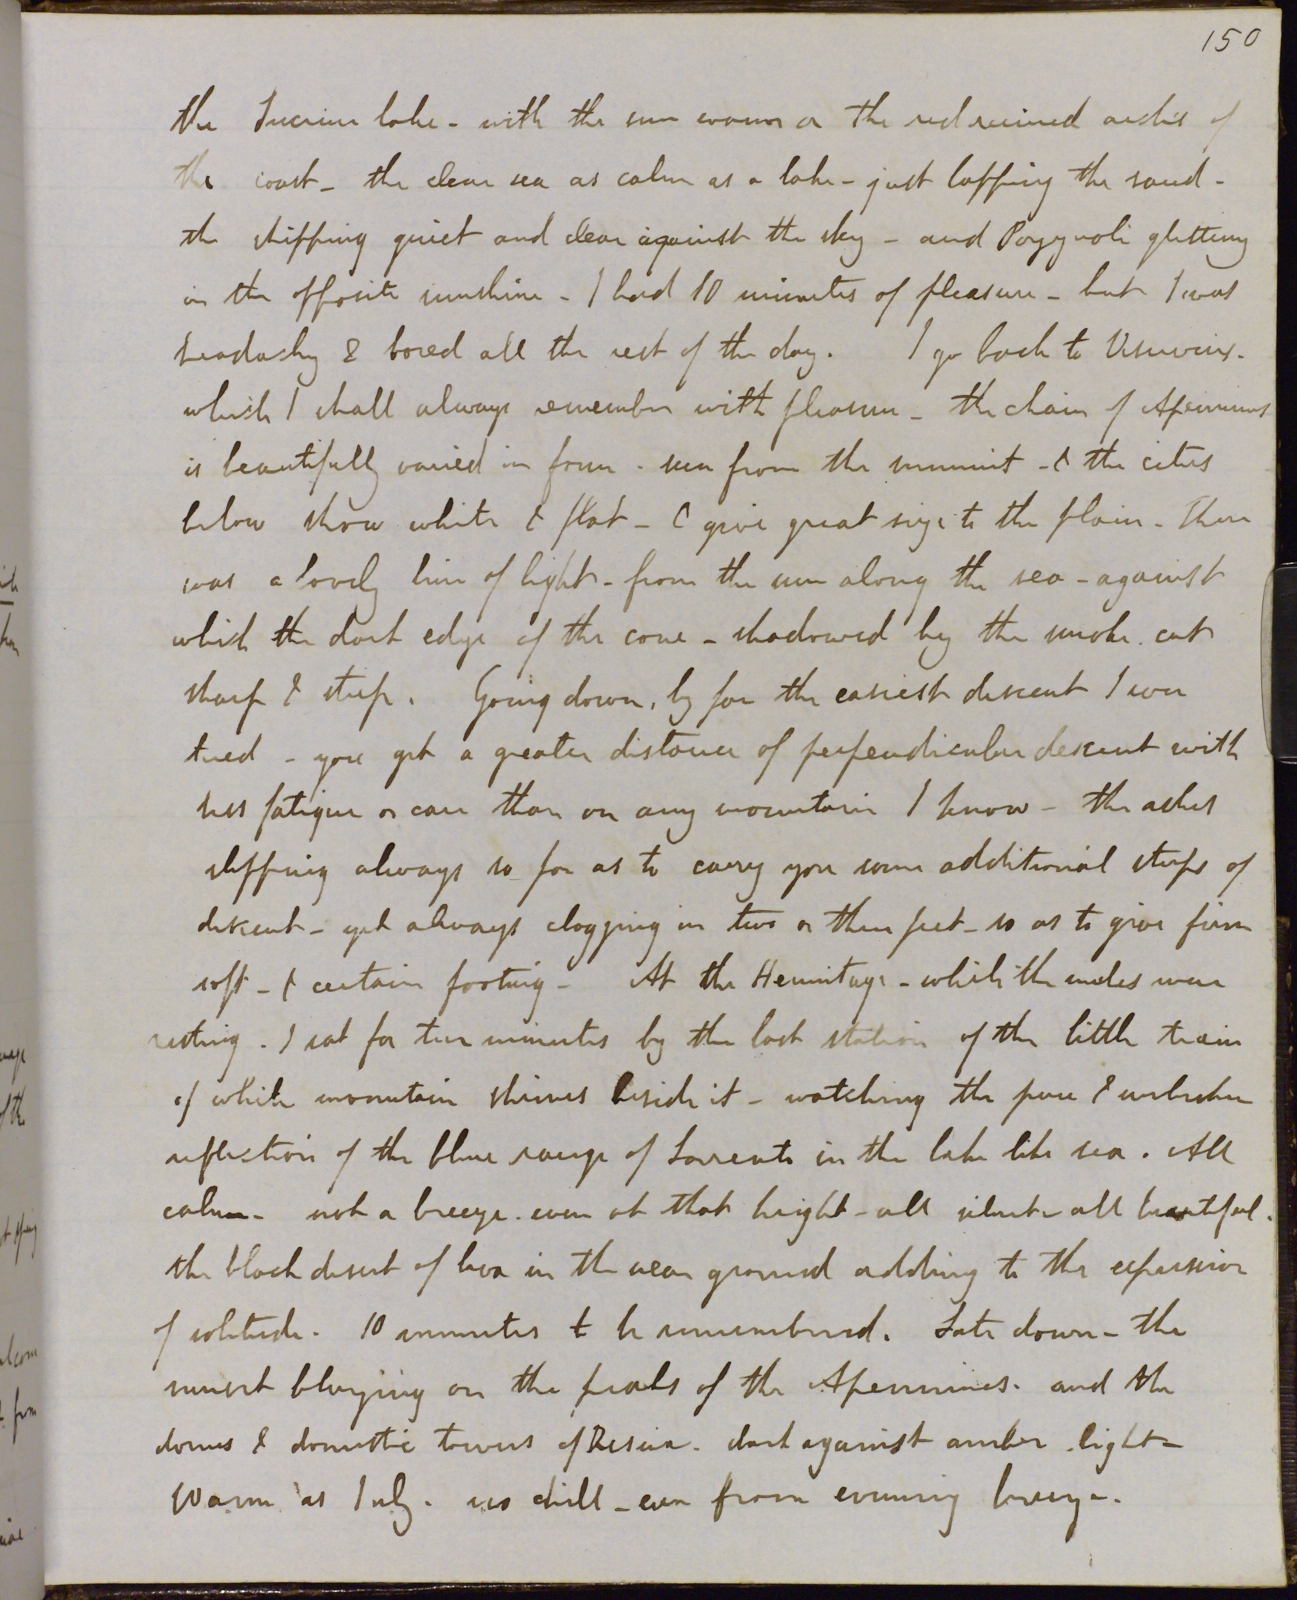 150
the Lucrine lake - with the sun warm on the red ruined arches of
the coast - the clear sea as calm as a lake - just lapping the sand -
the shipping quiet and clear against the sky - and Pozzuoli glittering
in the opposite sunshine - I had 10 minutes of pleasure - but I was
headachy & bored all the rest of the day. I go back to Vesuvius.
which I shall always remember with pleasure - the chain of Apennines
is beautifully varied in form - seen from the summit - & the cities
below show white & flat - & give great size to the plain - There
was a lovely line of light - from the sun along the sea - against
which the dark edge of the cone - shadowed by the smoke cut
sharp & steep. Going down, by far the easiest descent I ever
tried - you get a greater distance of perpendicular descent with
less fatigue or care than on any mountain I know - the ashes
slipping always so far as to carry you some additional steps of
descent - yet always clogging in two or three feet - so as to give firm
soft - & certain footing - At the Hermitage - while the mules were
resting. I sat for ten minutes by the last station of the little train
of white mountain shrines beside it - watching the pure & unbroken
reflection of the blue range of Sorrento in the lake like sea. All
calm - not a breeze even at that height - all silent - all beautiful.
the black desert of lava in the near ground adding to the expression
of solitude. 10 minutes to be remembered. Late down - the
sunset blazing on the peaks of the Apennines. and the
domes & domestic towers of Resina. dark against amber light -
Warm as July. no chill - even from evening breeze.